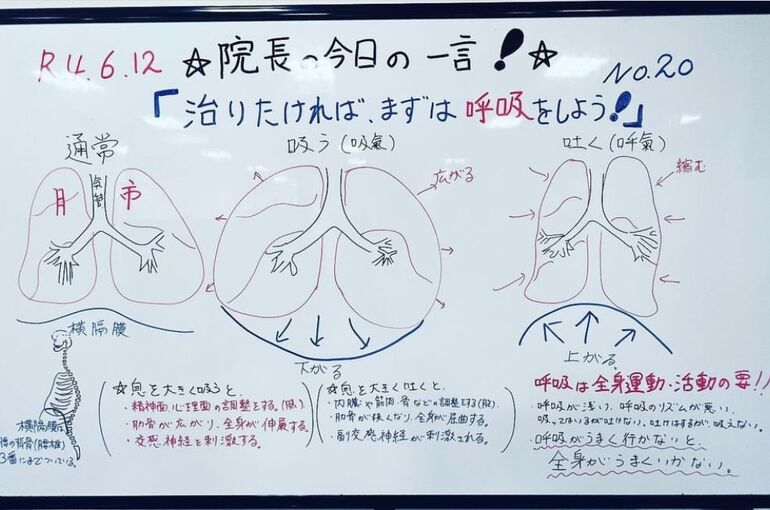 R4.6.12 ☆院長の今日の一言!☆ No.20
「治りたければ、まずは呼吸をしよう!」
通常
吸う(吸氣)
吐く(呼氣)
気管
月 市
広がる
縮む
横隔膜
下がる
上がる
横隔膜は
腰の背骨(腰椎)
3番にまでついている。
☆息を大きく吸うと
・精神面、心理面の調整をする。(脳)
・肋骨が広がり、全身が伸展する。
・交感神経を刺激する。
☆息を大きく吐くと、
・内臓や筋肉・骨などの調整をする(脳)
・肋骨が狭くなり、全身が屈曲する。
・副交感神経が刺激される。
呼吸は全身運動・活動の要!!
・呼吸が浅い、呼吸のリズムが悪い、
吸ってはいるが吐けない。吐けはするが、吸えない。
・呼吸がうまく行かないと、
全身がうまくいかない。